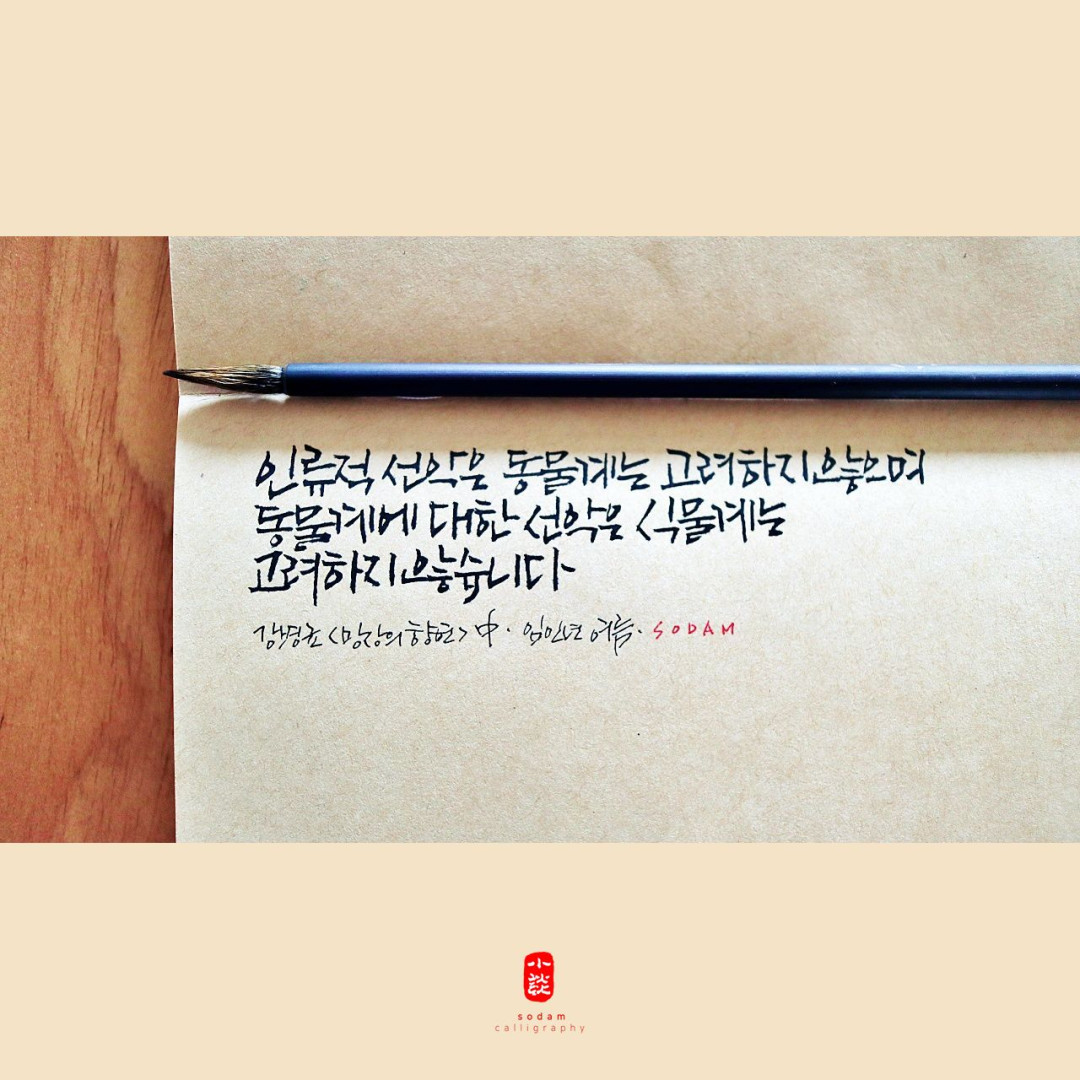 인류적 선악은 동물계는 고려하지 않으며
동물계에 대한 선악은 식물계는
고려하지 않습니다
<망상의 향연> 中 · 임인년 여름 · SODAM
小談
sodam
calligraphy